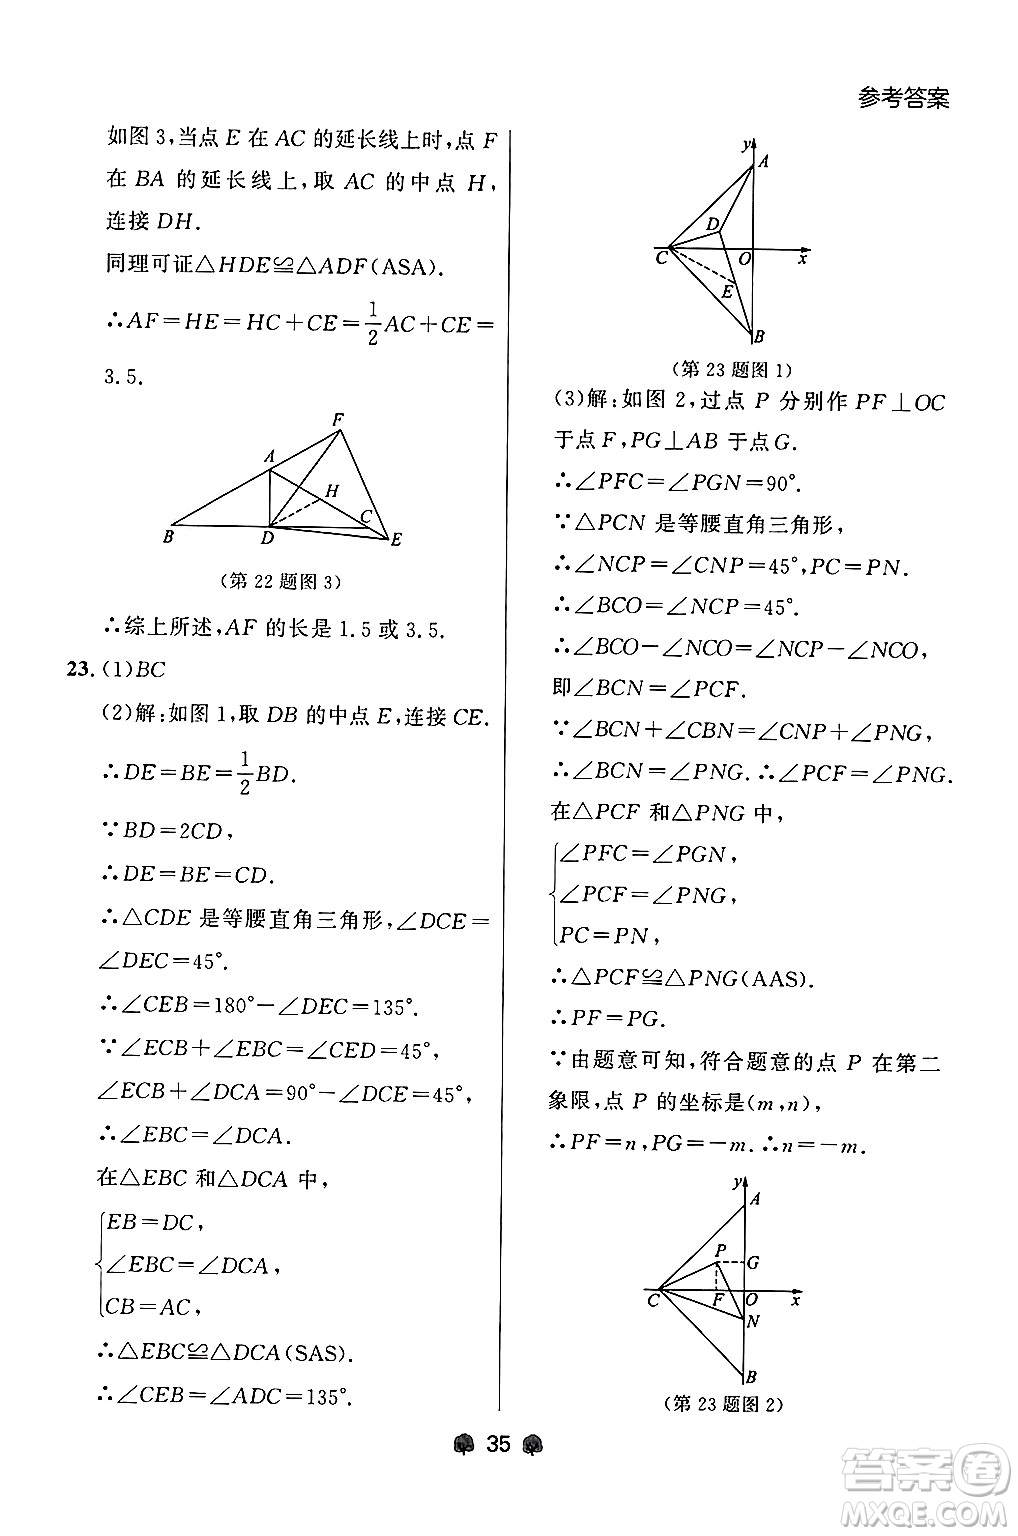 参考答案
如图3,当点E在AC的延长线上时,点F
在BA的延长线上,取AC的中点H,
连接DH.
同理可证△HDE≌△ADF(ASA).
∴AF=HE=HC+CE=\frac{1}{2}AC+CE=
3.5.
F
A
H
B
D
C
E
(第22题图3)
∴综上所述,AF的长是1.5或3.5.
23.(1)BC
(2)解:如图1,取DB的中点E,连接CE.
∴DE=BE=\frac{1}{2}BD.
∵BD=2CD,
∴DE=BE=CD.
∴△CDE是等腰直角三角形,∠DCE=
∠DEC=45°.
∴∠CEB=180°-∠DEC=135°.
∵∠ECB+∠EBC=∠CED=45°,
∠ECB+∠DCA=90°-∠DCE=45°,
∴∠EBC=∠DCA.
在△EBC和△DCA中,
EB=DC,
∠EBC=∠DCA,
CB=AC,
∴△EBC≌△DCA(SAS).
∴∠CEB=∠ADC=135°.
y
A
D
C
O
x
E
B
(第23题图1)
(3)解:如图2,过点P分别作PF⊥OC
于点F,PG⊥AB于点G.
∴∠PFC=∠PGN=90°.
∵△PCN是等腰直角三角形,
∴∠NCP=∠CNP=45°,PC=PN.
∴∠BCO=∠NCP=45°.
∴∠BCO-∠NCO=∠NCP-∠NCO,
即∠BCN=∠PCF.
∵∠BCN+∠CBN=∠CNP+∠PNG,
∴∠BCN=∠PNG.∴∠PCF=∠PNG.
在△PCF和△PNG中,
∠PFC=∠PGN,
∠PCF=∠PNG,
PC=PN,
∴△PCF≌△PNG(AAS).
∴PF=PG.
∵由题意可知,符合题意的点P在第二
象限,点P的坐标是(m,n),
∴PF=n,PG=-m.∴n=-m.
y
A
P
G
C
F
O
x
N
B
(第23题图2)
35
答案卷
MXQE.COM